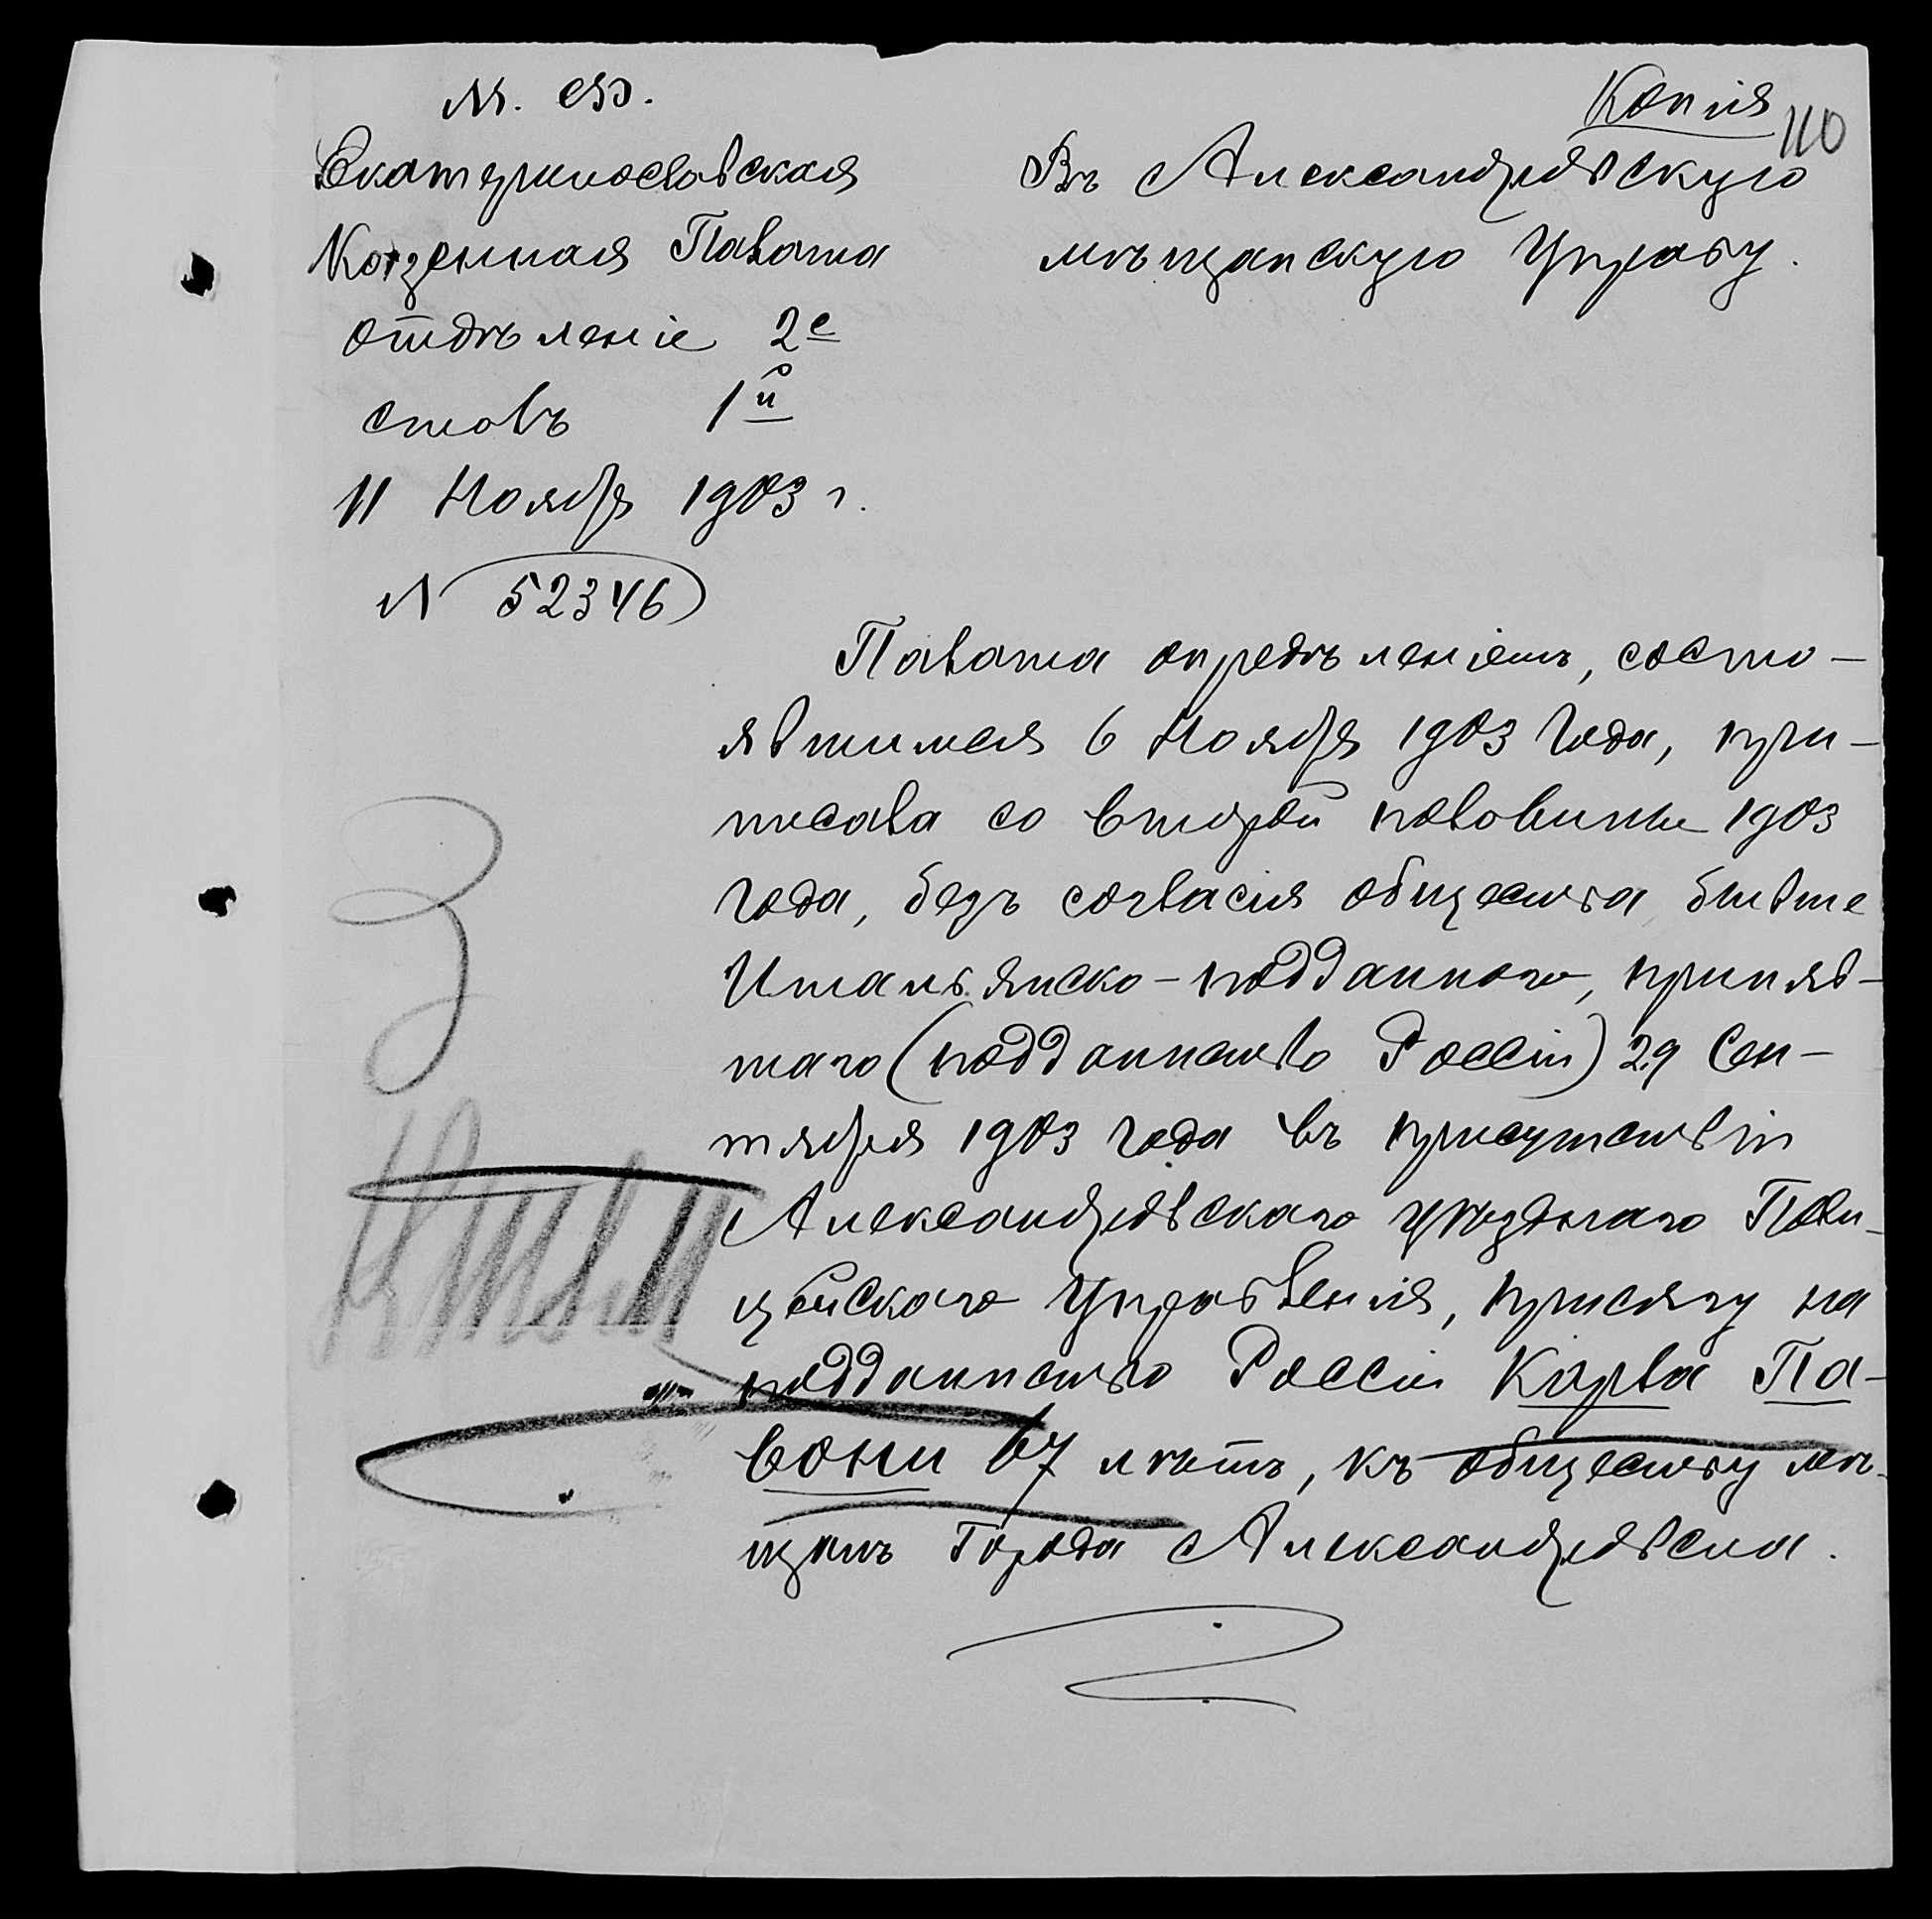 М. Ф.
Копія
110
Екатеринославская
Казенная Палата
отдѣленіе 2е
столъ 1й
11 Ноября 1903 г.
№ 52346
Въ Александровскую
мѣщанскую Управу.
Палата опредѣленіемъ, состо-
явшимся 6 Ноября 1903 года, при-
писала со второй половины 1903
года, безъ согласія общества бывше
Итальянско-подданного, приняв-
шаго (подданство Россіи) 29 Сен-
тября 1903 года въ присутствіи
Александровскаго уѣзднаго Поли-
цейскаго Управленія, присягу на
подданство Россіи Карла Па-
вони 67 лѣтъ, къ обществу мѣ-
щанъ Города Александровска.